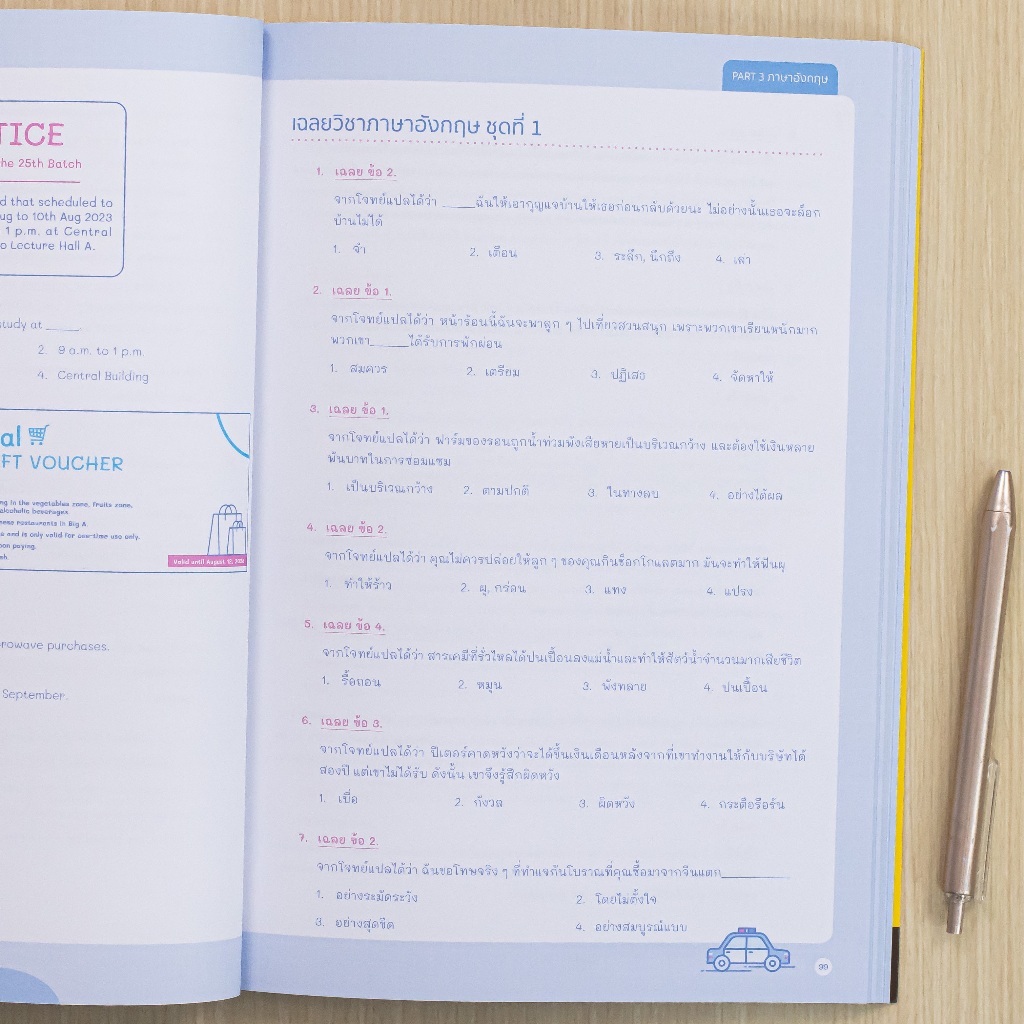 TICE
he 25th Batch
d that scheduled to
ug to 10th Aug 2023
1 p.m. at Central
o Lecture Hall A.
study at _____.
2. 9 a.m. to 1 p.m.
4. Central Building
al
FT VOUCHER
ng in the vegetables zone, fruits zone,
alcoholic beverages
and is only valid for one-time use only.
on paying.
Valid until August
rowave purchases.
September.
PART 3 ภาษาอังกฤษ
เฉลยวิชาภาษาอังกฤษ ชุดที่ 1
1. เฉลย ข้อ 2.
จากโจทย์แปลได้ว่า _____ฉันให้เอากุญแจบ้านให้เธอก่อนกลับด้วยนะ ไม่อย่างนั้นเธอจะล็อก
บ้านไม่ได้
1. จำ 2. เตือน 3. ระลึก, นึกถึง 4. เล่า
2. เฉลย ข้อ 1.
จากโจทย์แปลได้ว่า หน้าร้อนนี้ฉันจะพาลูก ๆ ไปเที่ยวสวนสนุก เพราะพวกเขาเรียนหนักมาก
พวกเขา______ได้รับการพักผ่อน
1. สมควร 2. เตรียม 3. ปฏิเสธ 4. จัดหาให้
3. เฉลย ข้อ 1.
จากโจทย์แปลได้ว่า ฟาร์มของรอนถูกน้ำท่วมพังเสียหายเป็นบริเวณกว้าง และต้องใช้เงินหลาย
พันบาทในการซ่อมแซม
1. เป็นบริเวณกว้าง 2. ตามปกติ 3. ในทางลบ 4. อย่างได้ผล
4. เฉลย ข้อ 2.
จากโจทย์แปลได้ว่า คุณไม่ควรปล่อยให้ลูก ๆ ของคุณกินช็อกโกแลตมาก มันจะทำให้ฟันผุ
1. ทำให้ร้าว 2. ผุ, กร่อน 3. แทง 4. แปรง
5. เฉลย ข้อ 4.
จากโจทย์แปลได้ว่า สารเคมีที่รั่วไหลได้ปนเปื้อนลงแม่น้ำและทำให้สัตว์น้ำจำนวนมากเสียชีวิต
1. รื้อถอน 2. หมุน 3. พังทลาย 4. ปนเปื้อน
6. เฉลย ข้อ 3.
จากโจทย์แปลได้ว่า ปีเตอร์คาดหวังว่าจะได้ขึ้นเงินเดือนหลังจากที่เขาทำงานให้กับบริษัทได้
สองปี แต่เขาไม่ได้รับ ดังนั้น เขาจึงรู้สึกผิดหวัง
1. เบื่อ 2. กังวล 3. ผิดหวัง 4. กระตือรือร้น
7. เฉลย ข้อ 2.
จากโจทย์แปลได้ว่า ฉันขอโทษจริง ๆ ที่ทำแจกันโบราณที่คุณซื้อมาจากจีนแตก__________
1. อย่างระมัดระวัง 2. โดยไม่ตั้งใจ
3. อย่างสุดขีด 4. อย่างสมบูรณ์แบบ
99